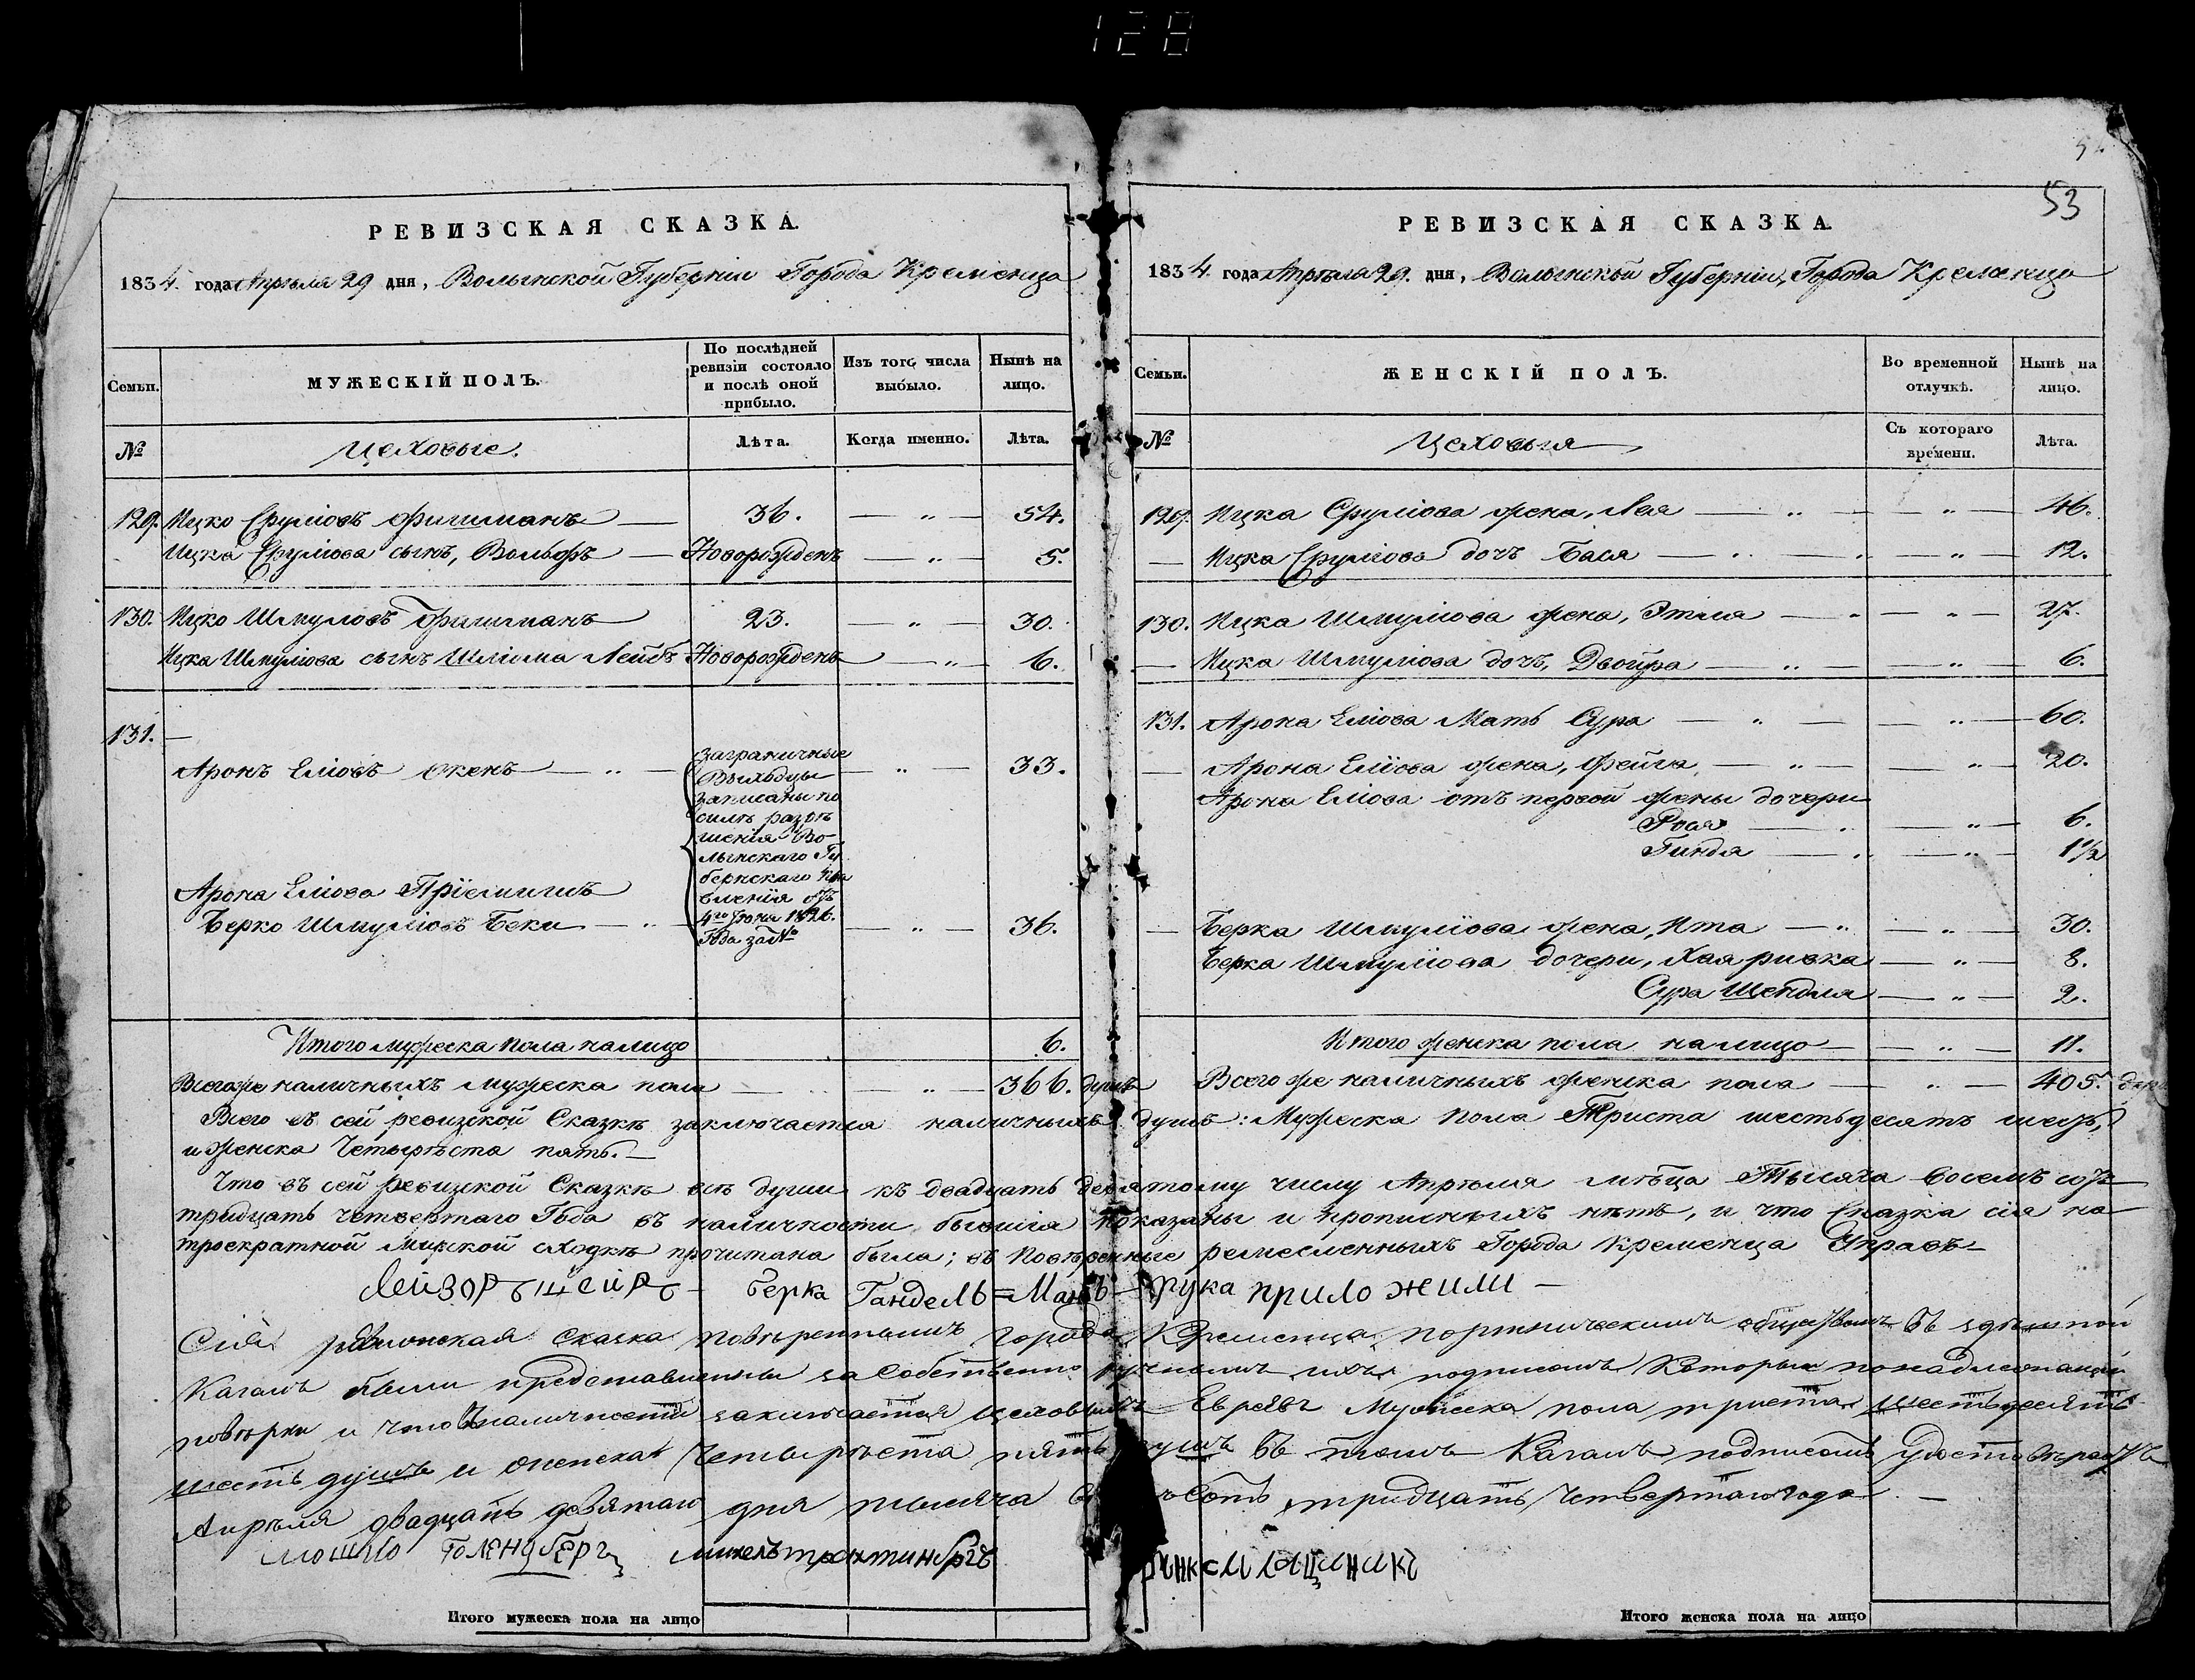 128
53
РЕВИЗСКАЯ СКАЗКА.
1834. года Апрѣля 29 дня, Волынской Губерніи Города Кременца
Семьи.
МУЖЕСКІЙ ПОЛЪ.
По послѣдней ревизіи состояло и послѣ оной прибыло.
Изъ того числа выбыло.
Нынѣ на лицо.
№
Цеховые.
Лѣта.
Когда именно.
Лѣта.
129. Ицко Сруліовъ Фишманъ — 36. — „ — 54.
Ицка Сруліова сынъ, Вольфъ — Новорожденъ — „ — 5.
130. Ицко Шмуліовъ Фишманъ 23. — „ — 30.
Ицка Шмуліова сынъ Шліома Лейбъ Новорожденъ — „ — 6.
131. —
Аронъ Еліовъ Окенъ — „ — — „ — 33.
заграничные
Выходцы
записаны по
силѣ разрѣ
шенія Во-
лынскаго Гу
бернскаго Пра
вленія отъ
4го Іюня 1826.
Года за №
Арона Еліова Пріемышъ
Берко Шмуліовъ Беки — „ — — „ — 36.
Итого мужеска пола налицо 6.
Всего же наличныхъ мужеска пола — „ — 366. душъ
РЕВИЗСКАЯ СКАЗКА.
1834. года Апрѣля 29. дня, Волынской Губерніи, Города Кременца
Семьи.
ЖЕНСКІЙ ПОЛЪ.
Во временной отлучкѣ.
Нынѣ на лицо.
№
Цеховыя
Съ котораго времени.
Лѣта.
129. Ицка Сруліова жена, Лея — „ — — „ — 46.
— Ицка Сруліова дочь Бася — „ — — „ — 12.
130. Ицка Шмуліова жена, Этля — „ — „ — 27.
— Ицка Шмуліова дочь, Двойра — „ — — „ — 6.
131. Арона Еліова Мать Сура — „ — — „ — 60.
— Арона Еліова жена, Фейга, — „ — — „ — 20.
Арона Еліова отъ первой жены дочери
— „ — „ — 6.
Гиндя — „ — „ — 1 1/2
— Берка Шмуліова жена, Ита — „ — „ — 30.
Берка Шмуліова дочери, Хая ривка — „ — 8.
Сура Шендля — „ — 2.
Итого женска пола налицо — „ — 11.
Всего же наличныхъ женска пола — „ — 405.
Всего въ сей ревизской Сказкѣ заключается наличныхъ душъ: Мужеска пола Триста шестьдесятъ шесть,
и женска Четыреста пять. —
Что въ сей ревизской Сказкѣ всѣ души къ двадцать девятому числу Апрѣля мѣсца Тысяча восемъ сотъ
тридцать четвертаго Года въ наличности бывшія показаны и прописныхъ нѣтъ, и что Сказка сія на
троекратной Мирской сходкѣ прочитана была; въ Повѣренные ремесленныхъ Города Кременца Управъ —
Берка Гандель=Манъ рука приложили —
Сія сказка повѣреннымъ города Кременца обществомъ въ здѣшной
Кагалъ были представлены за Собственно ручнымъ ихъ подписомъ Которыя по надлежащей
повѣрки и что въ наличности заключается цеховыхъ Евреевъ Мужеска пола триста шестьдесятъ
шесть душъ и женска Четыреста пять душъ въ томъ Кагалъ подписомъ удостовѣряетъ
Апрѣля двадцать девятаго дня тысяча сотъ тридцать Четвертаго года —
Мошко Голендберг
Итого мужеска пола на лицо
Итого женска пола на лицо